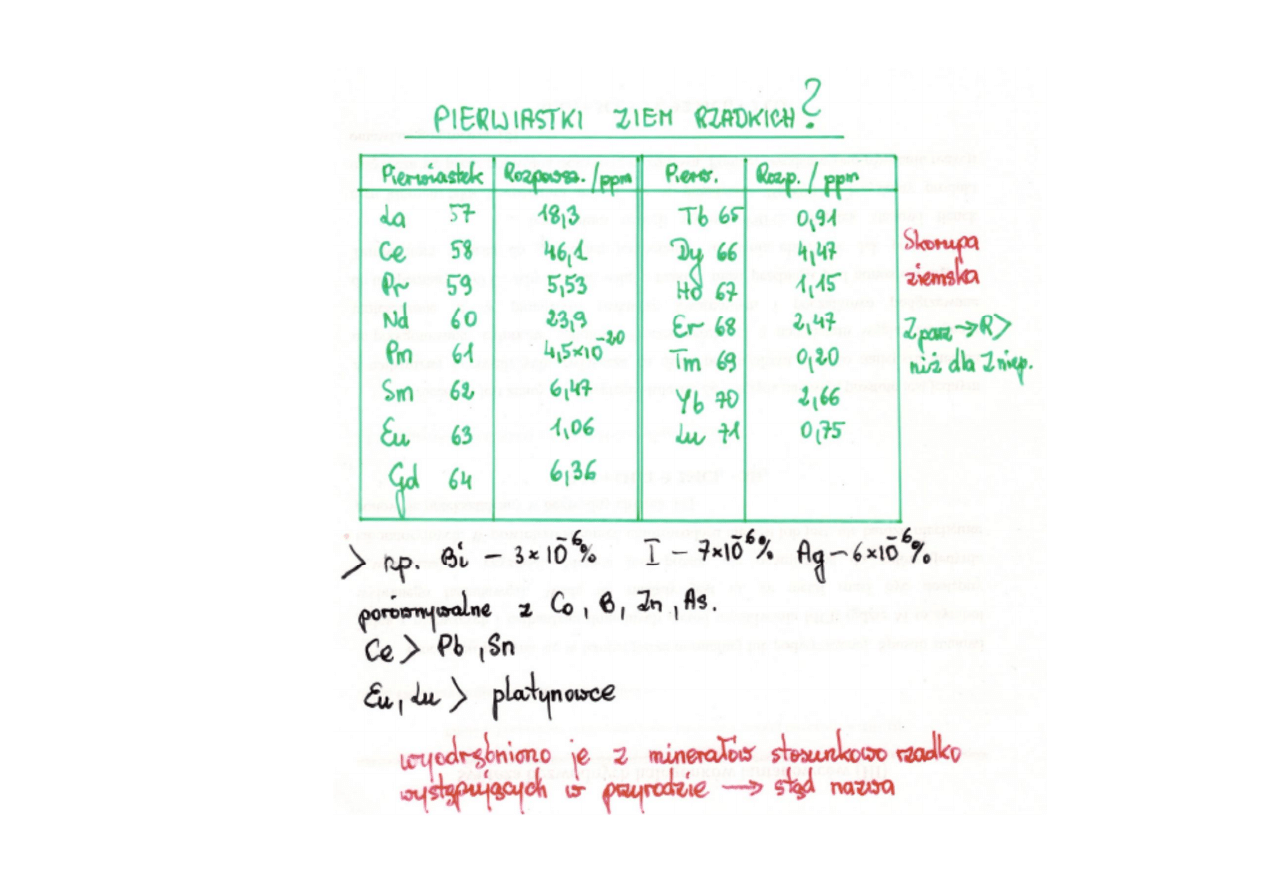 PIERWIASTKI ZIEM RZADKICH?
Pierwiastek Rozpowsz./ppm Pierw. Rozp./ppm
La 57 18,3 Tb 65 0,91
Ce 58 46,1 Dy 66 4,47
Pr 59 5,53 Ho 67 1,15
Nd 60 23,9 Er 68 2,47
Pm 61 4,5×10⁻²⁰ Tm 69 0,20
Sm 62 6,47 Yb 70 2,66
Eu 63 1,06 Lu 71 0,75
Gd 64 6,36
Skorupa
ziemska
Z parz → R >
niż dla Z niep.
> np. Bi – 3×10⁻⁶% I – 7×10⁻⁶% Ag – 6×10⁻⁶%
porównywalne z Co, B, Zn, As.
Ce > Pb, Sn
Eu, Lu > platynowce
wyodrębniono je z minerałów stosunkowo rzadko
występujących w przyrodzie → stąd nazwa